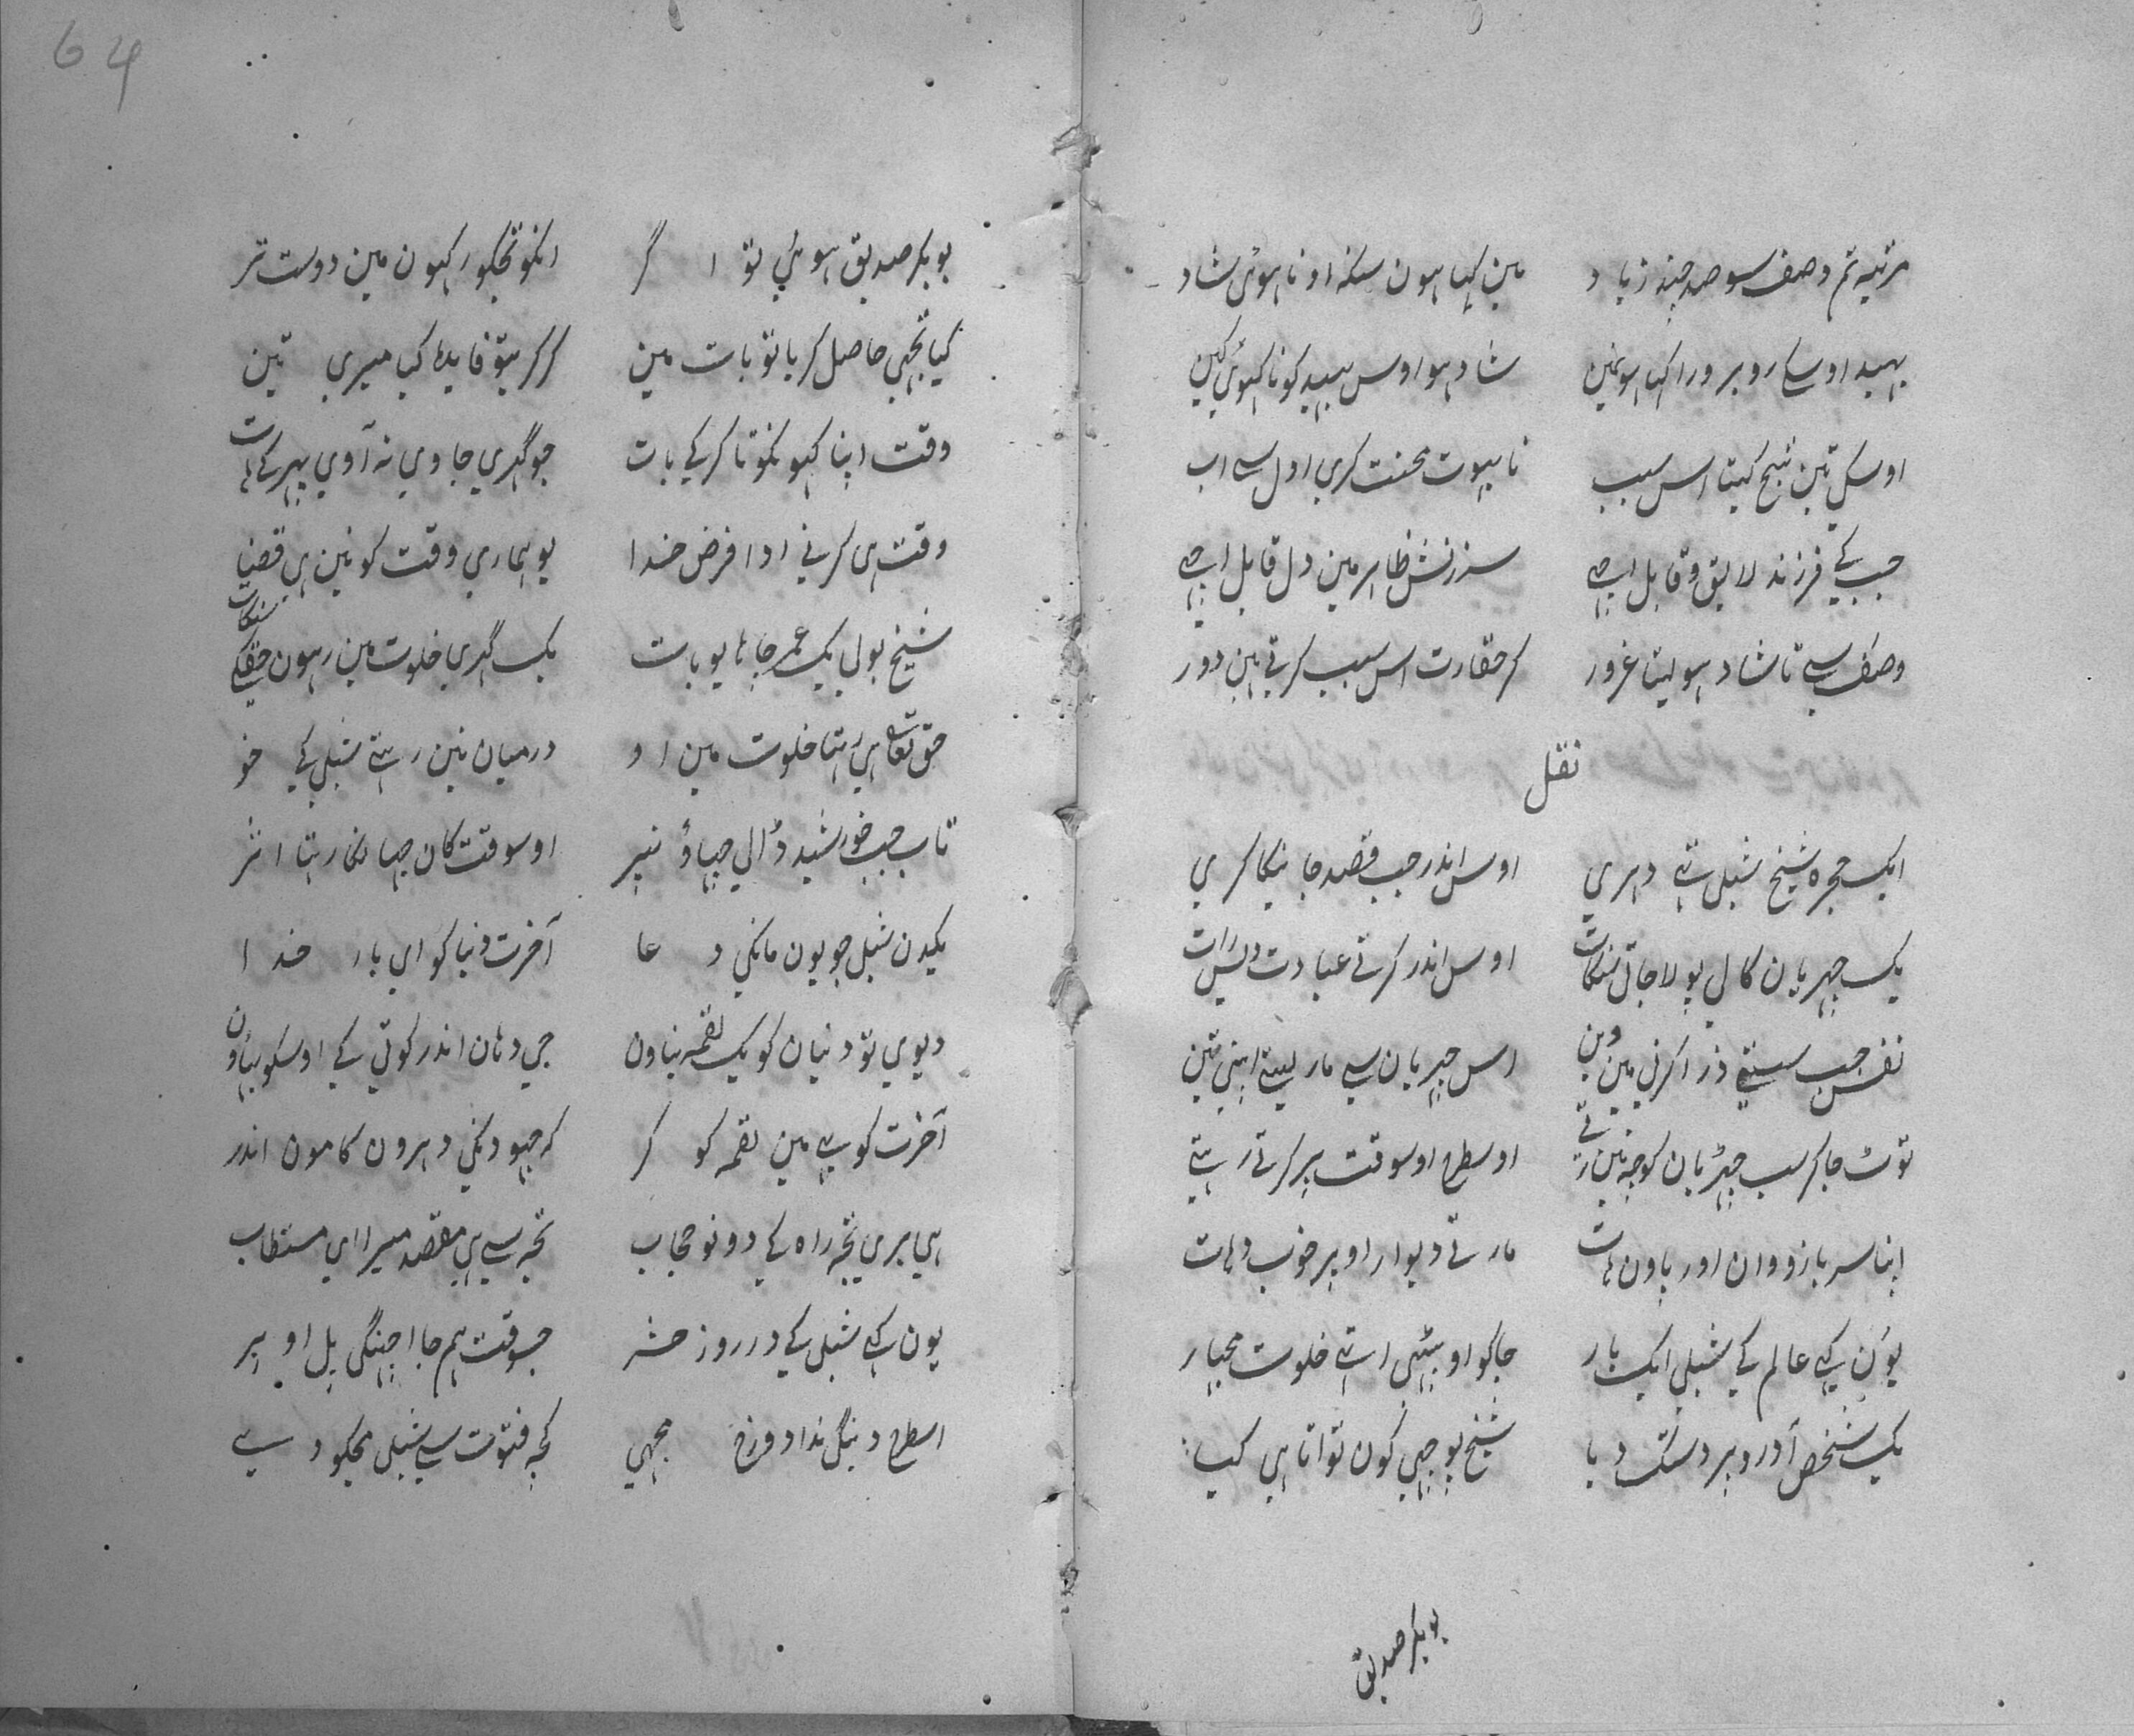 مرتبہ تم وصف سو صد چند زیاد
مین کہا ہون سکنہ او نا ہوئی شاد
بہید اوسکے روبرو را کہا سو نمین
شاد ہوا اوس بہید کو نا کہوئی کہین
اوسکی تین شیخ کیتا اس سبب
تا بہوت محنت کری اول سے اب
جب کے فرزند لایق و قابل اچھے
سرزنش ظاہر مین دل قابل اچھے
وصف سے تا شاد ہو لیتا غرور
کر حقارت اس سبب کرتے ہین دور
نقل
ایک حجرہ شیخ شبلی تھے دہری
اوس اندر جب قصد جا نیکا کری
یک چہریان کا لی پولا جاتی سنگات
اوس اندر کرتے عبادت دیس رات
نفس جب سستی ذرا کرنی مین وین
اس چہریان سے مار لیتے اپنی تین
توٹ جا کر سب چہڑیان کوچہ نین رتے
اوسطرح اوسوقت پر کرتے رہتے
اپنا سر بازو وان اور پاون ہات
مارتے دیوار اوپر خوب دہات
یون کہے عالم کے شبلی ایک بار
جاکو او بیٹھی اتھے خلوت مجہار
یک شخص آ در و پر دستک دیا
شیخ پوچھی کون تو اتا ہی کیا
بوبکر صدیق
64
بوبکر صدیق ہوئی تو اگر
انکو تجکو رکہون مین دوست تر
کیا تجہی حاصل کریا تو بات مین
کر کریتو فایدہ کیا میری تین
وقت اپنا کہو نکو تا کر کے بات
جو گہری جاوی نہ آوی پہر کے ہات
وقت ہی کرنی ادا فرض خدا
یو ہماری وقت کو نین ہی قضا
شیخ بولی یک عمر جا ہا یو بات
یک گہری خلوت مین رہون حقکے سنگات
حق تعالی ہی اہتا خلوت مین او
درمیان نین رہتے شبلی کے خو
تاب جب خورشید ڈالی چہاؤ نپر
اوسوقت کان چہانکا رہتا اثر
یکدن شبلی جو یون مانگی دعا
آخرت دنیا کو ای بار خدا
دیوی تو دنیان کو یک لقمہ بناون
جی دہان اندر کوتی کے اوسکو بہاون
آخرت کو بہی مین لقمہ کو کر
کہ جہودنکی دہرون کامون اندر
ہی بری تجہ راہ کے دونو حجاب
تجہ سے ہی مقصد میرا ای مستطاب
یون کہے شبلی کے در روز حشر
جسوقت ہم جا اچہنگی پل اوپر
اسطرح دینگی ندا دوزخ مجہی
کچہ فتوت سے شبلی مجکو دسے